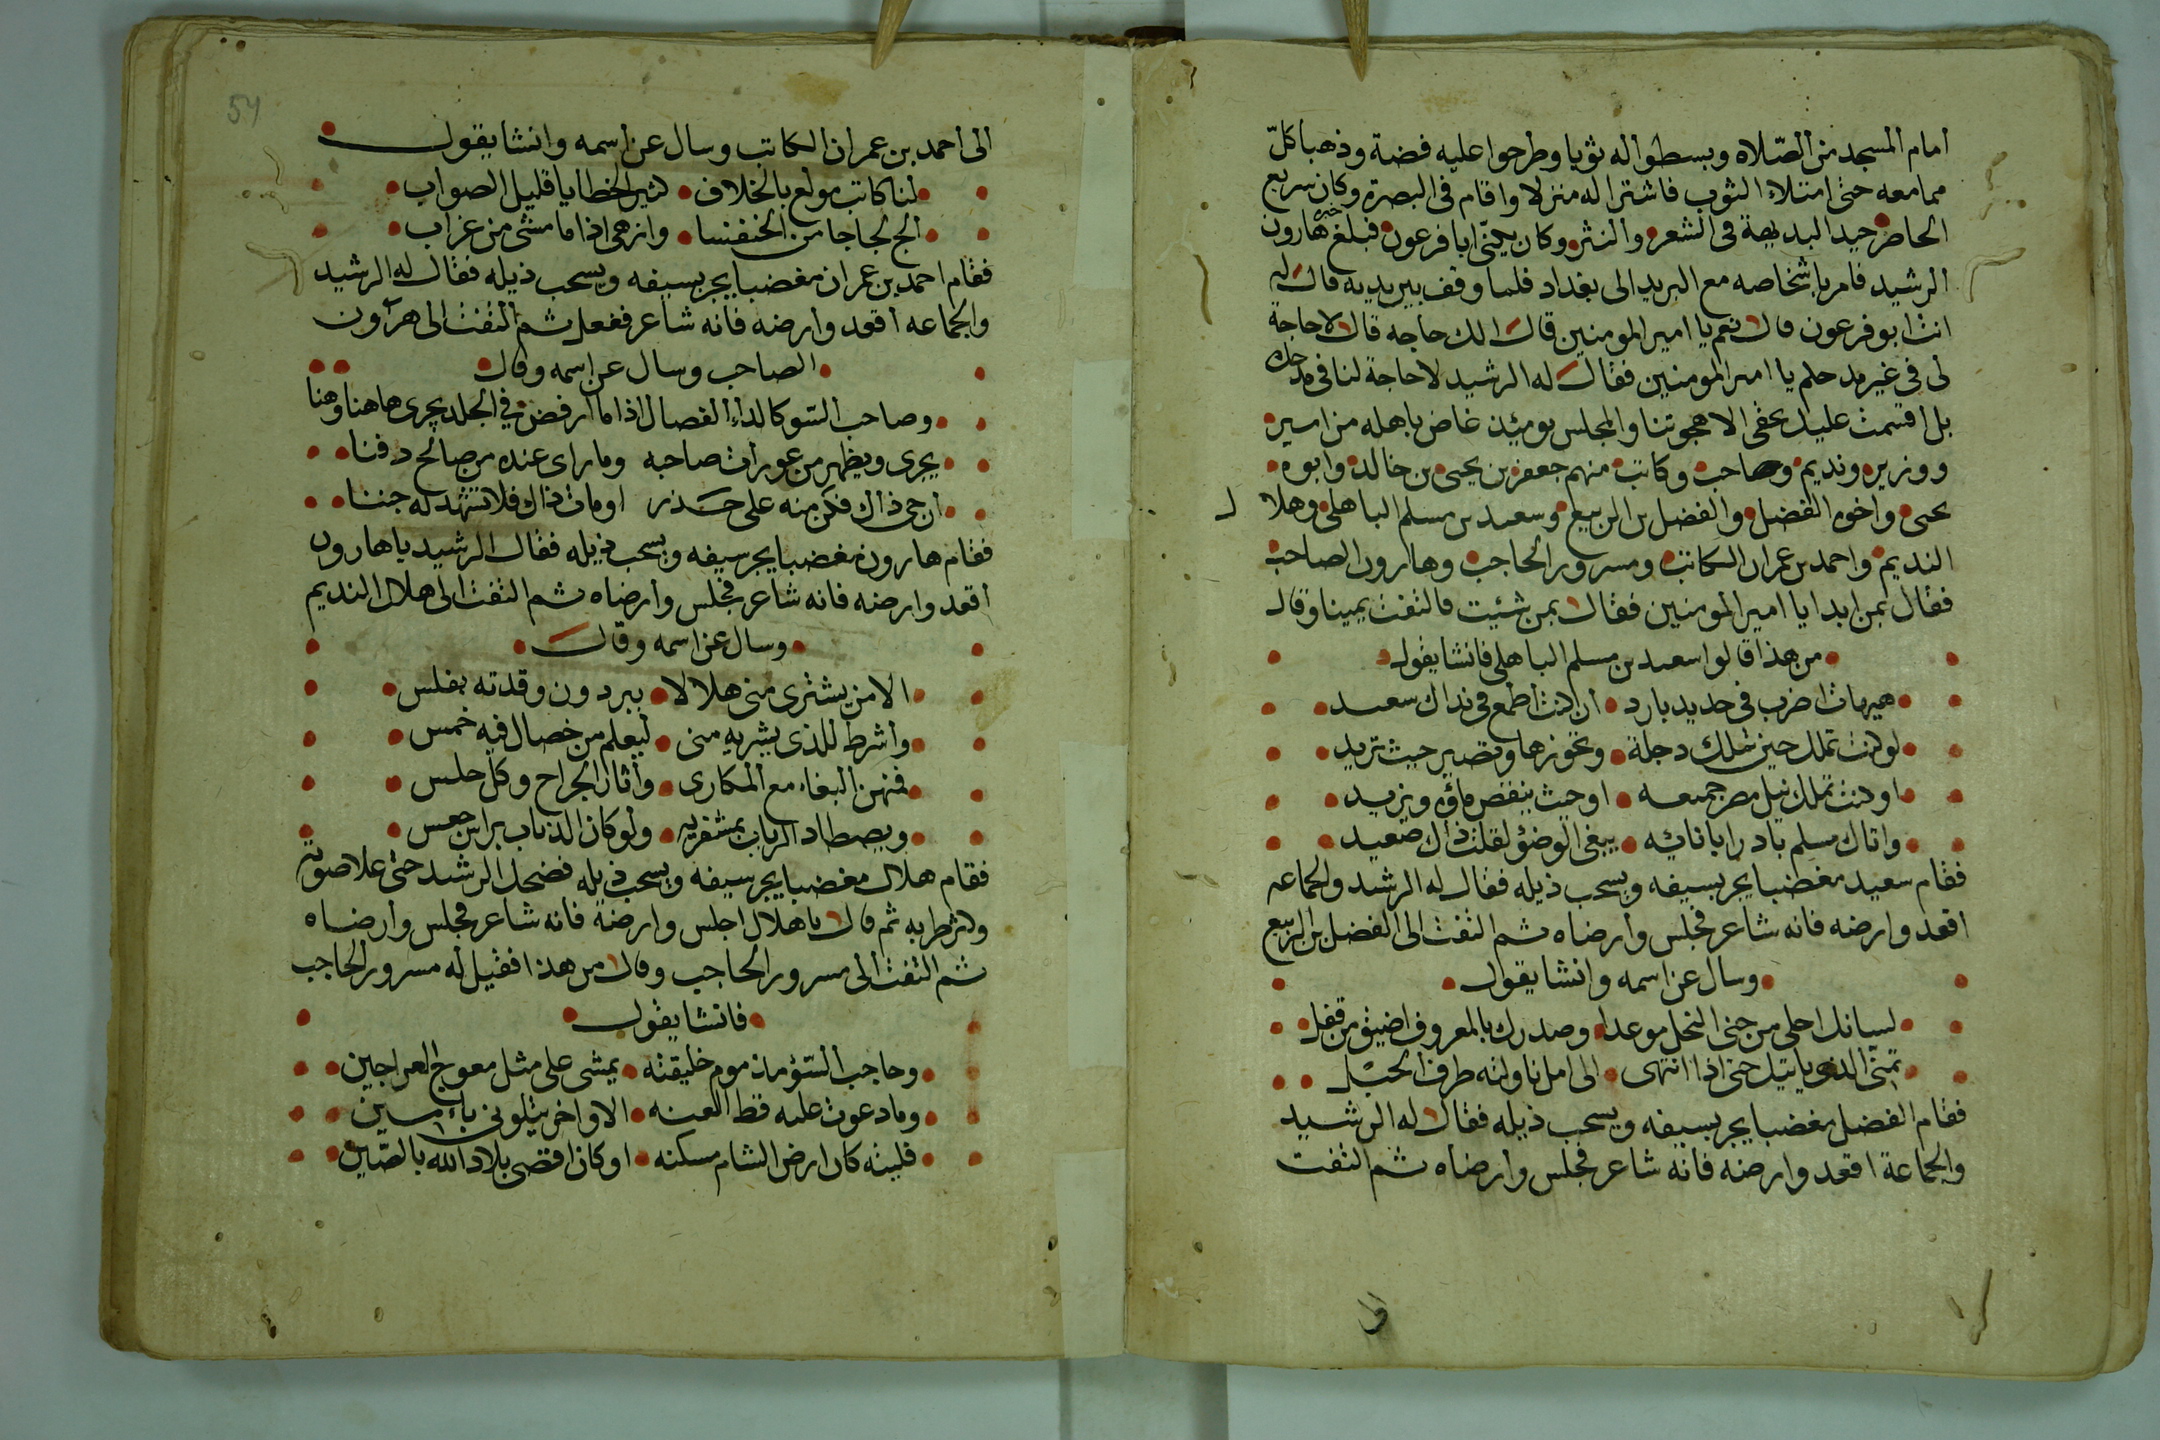 أمام المسجد من الصّلاه وبسطوا له ثوبا وطرحوا عليه فضة وذهبا كلّ
ممامعه حتى امتلاء الثوب فاشترا له منزلا واقام فى البصرة وكان سريع
الحاضر جيد البديهة فى الشعر والنثر وكان يكنّى ابا فرعون فبلغ خبره هارون
الرشيد فامر بإشخاصه مع البريد الى بغداد فلما وقف بين يديه قال له
انت ابو فرعون قال نعم يا امير المومنين قال الك حاجه قال لا حاجة
لى فى غير مدحكم يا امير المومنين فقال له الرشيد لا حاجة لنا فى مدحك
بل اقسمت عليك بحقى الا هجوتنا والمجلس يومئذ غاص باهله من امير
ووزير ونديم وصاحب وكاتب منهم جعفر بن يحيى بن خالد وابوه
يحيى واخوه الفضل والفضل بن الربيع وسعيد بن مسلم الباهلى وهلال
النديم واحمد بن عمران الكاتب ومسرور الحاجب وهارون الصاحب
فقال بمن ابدا يا امير المومنين فقال بمن شئيت فالتفت يمينا وقال
من هذا قالوا سعيد بن مسلم الباهلى فانشا يقول
هيهات اضرب فى حديد بارد ان كنت أطمع فى نداك سعيد
لو كنت تملك حين تملك دجلة وتحوزها وتصير حيث تريد
او كنت تملك نيل مصر جميعه او حيث ينقص ماؤه ويزيد
واتاك مسلم بادرا باتائه يبغى الوضوء لقلت ذاك صعيد
فقام سعيد مغضبا يجر بسيفه ويسحب ذيله فقال له الرشيد والجماعه
اقعد وارضه فانه شاعر فجلس وأرضاه ثم التفت الى الفضل بن الربيع
وسال عن اسمه وانشا يقول
لسانك احلى من جنى النحل موعدا وصدرك بالمعروف اضيق من قفل
تمنّى الذى ياتيك حتى اذا انتهى الى امل ناولته طرف الحبل
فقام الفضل مغضبا يجر بسيفه ويسحب ذيله فقال له الرشيد
والجماعة اقعد وارضه فانه شاعر فجلس وأرضاه ثم التفت
54
الى أحمد بن عمران الكاتب وسال عن أسمه وانشا يقول
لنا كاتب مولع بالخلاف كثير الخطايا قليل الصواب
الج لجاجا من الخنفسا وازهى اذا ما مشى من غراب
فقام احمد بن عمران مغضبا يجر بسيفه ويسحب ذيله فقال له الرشيد
والجماعه أقعد وأرضه فانه شاعر ففعل ثم التفت الى هرآون
الصاحب وسال عن اسمه وقال
وصاحب السّو كالداء العضال اذا ما ارفض فى الجلد يجرى هاهنا وهنا
يجرى ويظهر من عورات صاحبه وما راى عنده من صالح دفنا
أن حى ذاك فكن منه على حذر او مات ذاك فلا تشهد له جننا
فقام هارون مغضبا يجر سيفه ويسحب ذيله فقال الرشيد يا هارون
أقعد وارضه فانه شاعر فجلس وأرضاه ثم التفت الى هلال النديم
وسال عن اسمه وقال
الا من يشترى منى هلالا ببردون وقدته بفلس
وأشرط للذى يشريه منى ليعلم من خصال فيه خمس
فمنهن البغاء مع المكارى وأثار الجراح وكل حلس
ويصطاد الذباب بمشفريه ولو كان الذباب براس جعس
فقام هلال مغضبا يجر سيفه ويسحب ذيله فضحك الرشيد حتى علا صوته
وكثر طربه ثم قال يا هلال اجلس وارضه فانه شاعر فجلس وأرضاه
ثم التفت الى مسرور الحاجب وقال من هذا فقيل له مسرور الحاجب
فانشا يقول
وحاجب السّؤ مذموم خليقته يمشى على مثل معوج العراجين
وما دعوت عليه قط العنه الا واخر يتلونى باءمين
فليته كان ارض الشام مسكنه او كان اقصى بلاد الله بالصّين